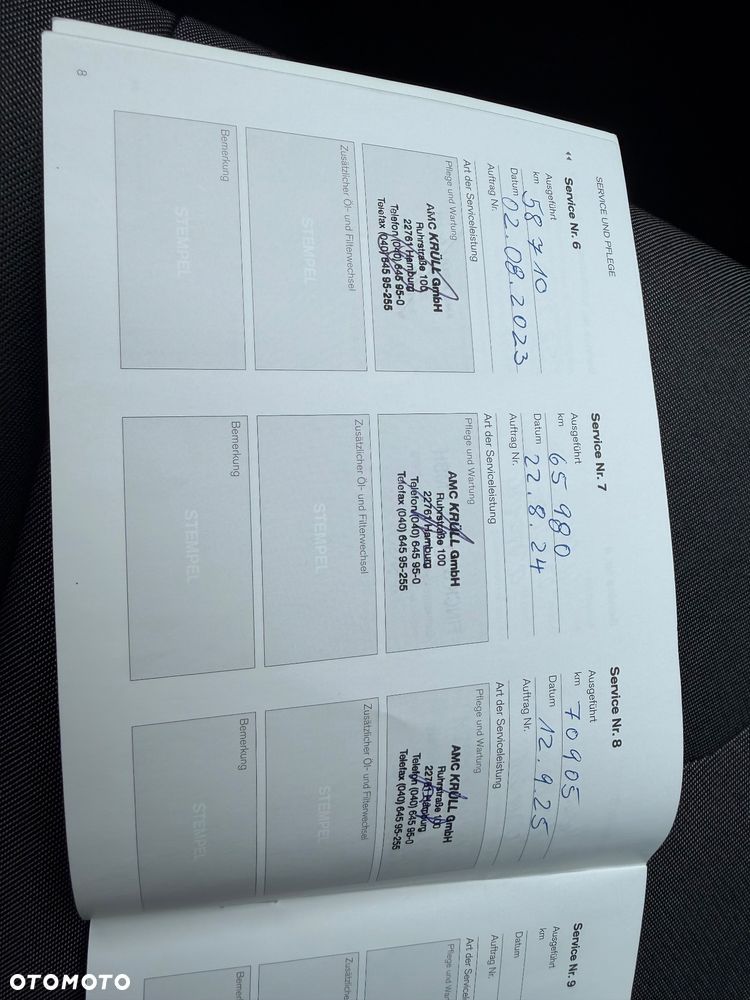 SERVICE UND PFLEGE
‹‹ Service Nr. 6
Ausgeführt
km 58 710
Datum 02.08.2023
Auftrag Nr.
Art der Serviceleistung
Pflege und Wartung
AMC KRÜLL GmbH
Ruhrstraße 100
22761 Hamburg
Telefon (040) 645 95-0
Telefax (040) 645 95-255
Zusätzlicher Öl- und Filterwechsel
STEMPEL
Bemerkung
STEMPEL
Service Nr. 7
Ausgeführt
km 65 980
Datum 22.8.24
Auftrag Nr.
Art der Serviceleistung
Pflege und Wartung
AMC KRÜLL GmbH
Ruhrstraße 100
22761 Hamburg
Telefon (040) 645 95-0
Telefax (040) 645 95-255
Zusätzlicher Öl- und Filterwechsel
STEMPEL
Bemerkung
STEMPEL
Service Nr. 8
Ausgeführt
km 70905
Datum 12.9.25
Auftrag Nr.
Art der Serviceleistung
Pflege und Wartung
AMC KRÜLL GmbH
Ruhrstraße 100
22761 Hamburg
Telefon (040) 645 95-0
Telefax (040) 645 95-255
Zusätzlicher Öl- und Filterwechsel
STEMPEL
Bemerkung
STEMPEL
8
Service Nr. 9
Ausgeführt
km
Datum
Auftrag Nr.
Art der Se
Pflege und
Zusätzliche
Bemer
OTOMOTO